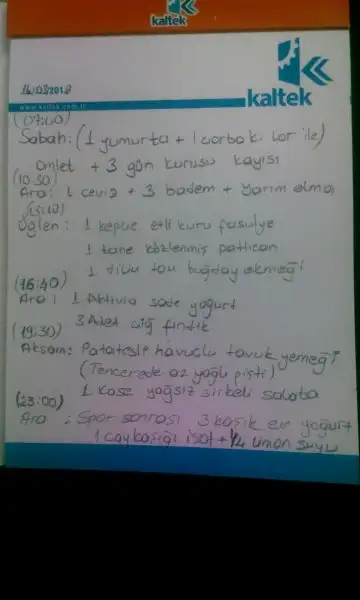 kaltek
14/03/2018
kaltek
www.kaltek.com.tr
(07:40)
Sabah: (1 yumurta + 1 çorba k. lor ile)
Omlet + 3 gün kurusu kayısı
(10:30)
Ara: 1 ceviz + 3 badem + yarım elma
Öğlen: 1 kepçe etli kuru fasulye
1 tane közlenmiş patlıcan
1 dilim tam buğday ekmeği
(16:40)
Ara: 1 Aktivia sade yoğurt
3 Adet çiğ fındık
(19:30)
Akşam: Patatesli havuçlu tavuk yemeği
(Tencerede az yağlı pişti)
1 Kase yağsız sirkeli salata
(23:00)
Ara: Spor sonrası 3 kaşık ev yoğurt
1 çay kaşığı isot + 1/4 limon suyu